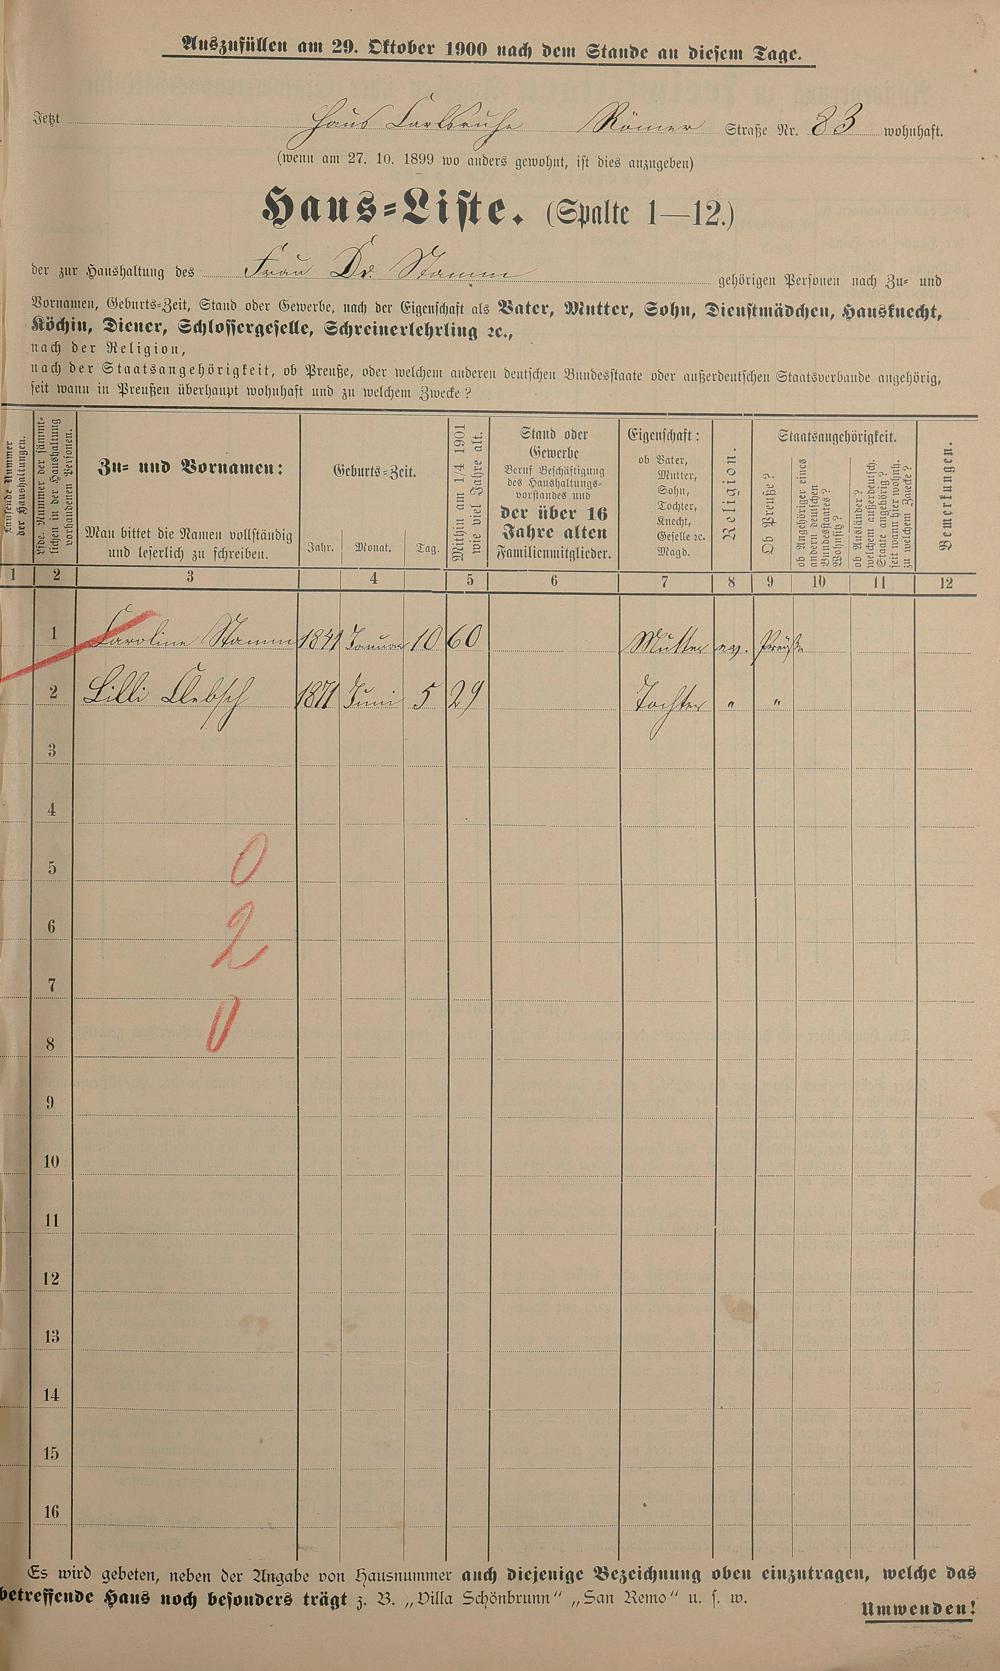 Auszufüllen am 29. Oktober 1900 nach dem Stande an diesem Tage.
Jetzt Haus Carlsruhe Römer Straße Nr. 83 wohnhaft.
(wenn am 27. 10. 1899 wo anders gewohnt, ist dies anzugeben)
Haus-Liste. (Spalte 1—12.)
der zur Haushaltung des Frau Dr. Stamm gehörigen Personen nach Zu- und
Vornamen, Geburts-Zeit, Stand oder Gewerbe, nach der Eigenschaft als Vater, Mutter, Sohn, Dienstmädchen, Hausknecht,
Köchin, Diener, Schlossergeselle, Schreinerlehrling ꝛc.,
nach der Religion,
nach der Staatsangehörigkeit, ob Preuße, oder welchem anderen deutschen Bundesstaate oder außerdeutschen Staatsverbande angehörig,
seit wann in Preußen überhaupt wohnhaft und zu welchem Zwecke?
Laufende Nummer
der Haushaltungen.
Lfde. Nummer der sämmt-
lichen in der Haushaltung
vorhandenen Personen.
Zu- und Vornamen:
Man bittet die Namen vollständig
und leserlich zu schreiben.
Geburts-Zeit.
Jahr. Monat. Tag.
Mithin am 1/4 1901
wie viel Jahre alt.
Stand oder
Gewerbe
Beruf Beschäftigung
des Haushaltungs-
vorstandes und
der über 16
Jahre alten
Familienmitglieder.
Eigenschaft:
ob Vater,
Mutter,
Sohn,
Tochter,
Knecht,
Geselle ꝛc.
Magd.
Religion.
Staatsangehörigkeit.
Ob Preuße?
ob Angehöriger eines
andern deutschen
Bundesstaates?
Wohnsitz?
ob Ausländer?
welchem außerdeutsch.
Staate angehörig?
seit wann hier wohnh.
zu welchem Zwecke?
Bemerkungen.
1 2 3 4 5 6 7 8 9 10 11 12
1 Caroline Stamm 1841 Januar 10 60 Mutter ev. Preuße
2 Lilli Clebsch 1871 Juni 5 29 Tochter " "
3
4
5 0
6 2
7
8 0
9
10
11
12
13
14
15
16
Es wird gebeten, neben der Angabe von Hausnummer auch diejenige Bezeichnung oben einzutragen, welche das
betreffende Haus noch besonders trägt z. B. „Villa Schönbrunn" „San Remo" u. s. w.
Umwenden!